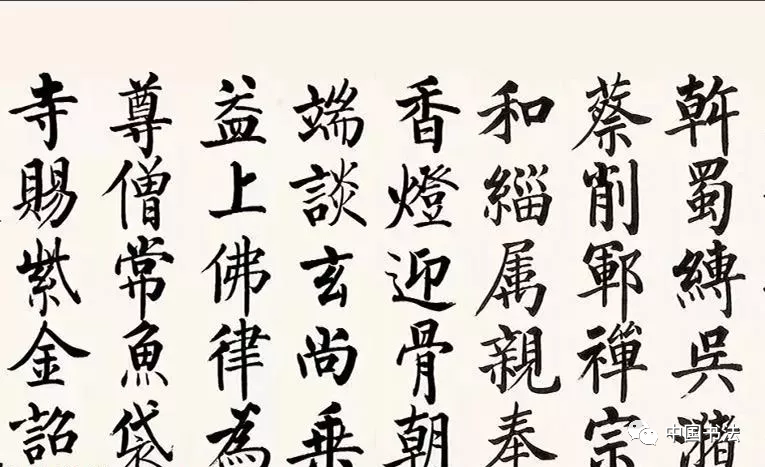 斡蜀縛吳瀦
蔡削鄆禪宗
和緇属親奉
香燈迎骨朝
端談玄尚乗
益上佛律為
尊僧常魚袋
寺賜紫金詔
中国书法